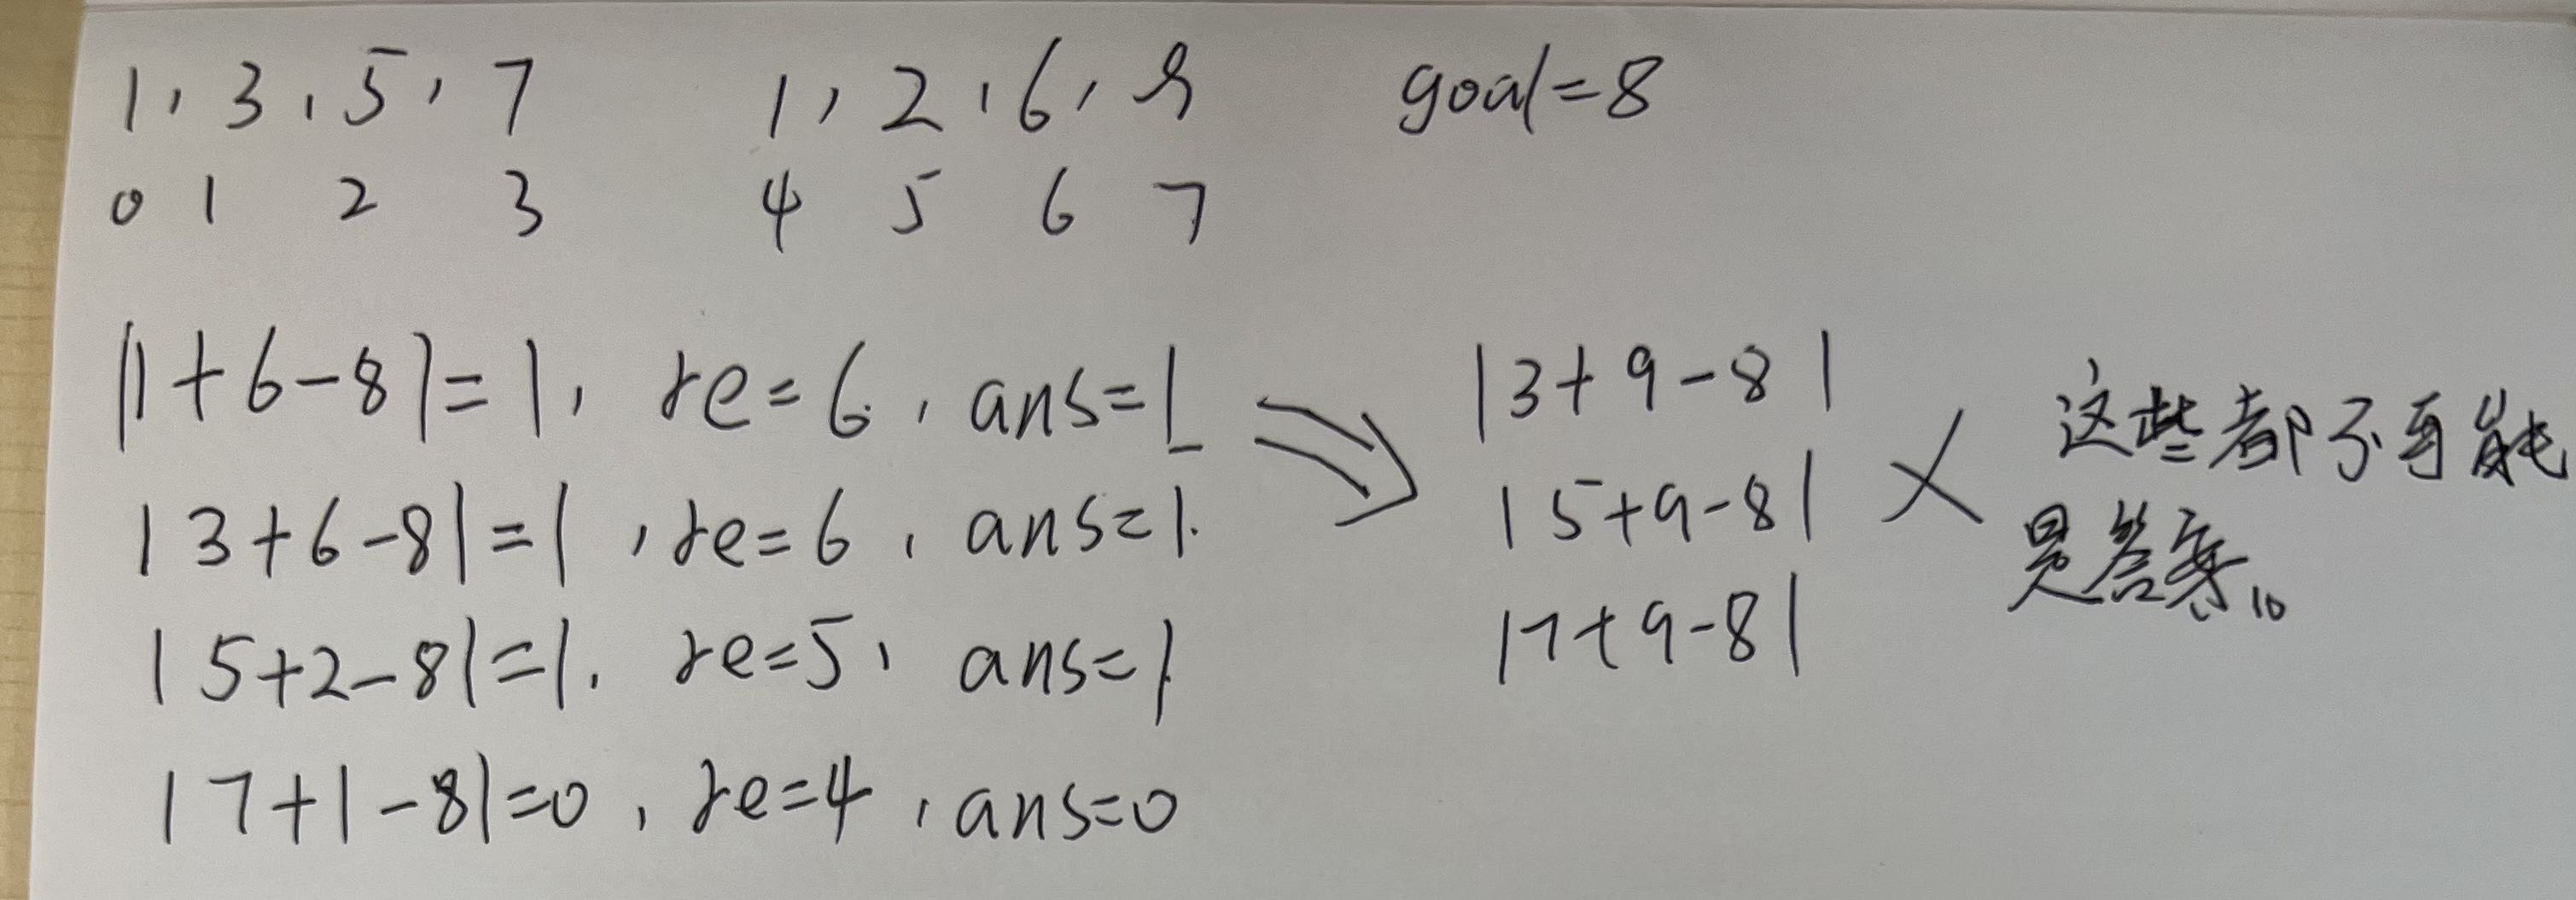 1, 3, 5, 7 1, 2, 6, 9 goal=8
0 1 2 3 4 5 6 7
|1+6-8|=1, re=6, ans=1
|3+6-8|=1, re=6, ans=1.
|5+2-8|=1. re=5, ans=1
|7+1-8|=0, re=4, ans=0
|3+9-8|
|5+9-8|
|7+9-8|
这些都不可能
是答案。